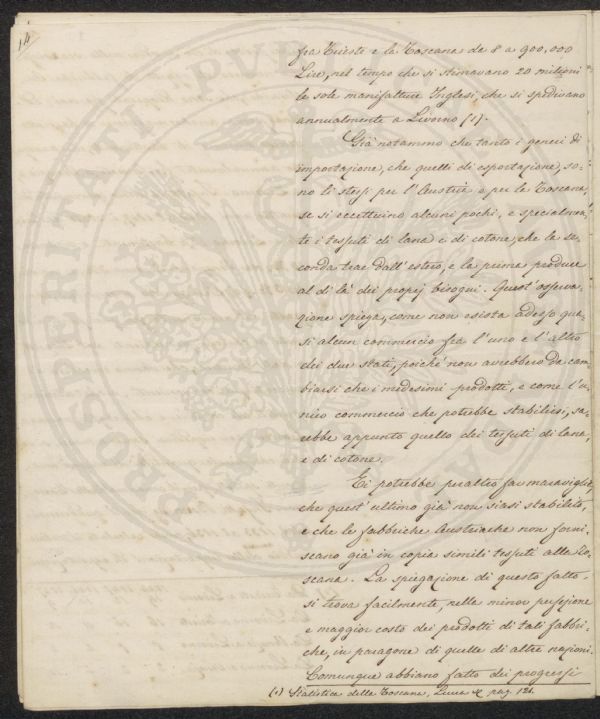 14
fra Trieste e la Toscana de 8 a 900,000
Lire, nel tempo che si stimavano 20 milioni
le sole manifatture Inglesi, che si spedivano
annualmente a Livorno (1).
Già notammo che tanto i generi di
importazione, che quelli di esportazione, so-
no li stessi per l'Austria e per la Toscana,
se si eccettuino alcuni pochi, e specialmen-
te i tessuti di lana e di cotone, che la se-
conda trae dall'estero, e la prima produce
al di là dei proprj bisogni. Quest'osserva-
zione spiega, come non esista adesso qua-
si alcun commercio fra l'uno e l'altro
dei due stati, poichè non avrebbero da cam-
biarsi che i medesimi prodotti, e come l'u-
nico commercio che potrebbe stabilirsi, sa-
rebbe appunto quello dei tessuti di lana,
e di cotone.
Ei potrebbe peraltro far maraviglia,
che quest'ultimo già non siasi stabilito,
e che le fabbriche Austriache non forni-
scano già in copia simili tessuti alla To-
scana. La spiegazione di questo fatto
si trova facilmente, nella minor perfezione
e maggior costo dei prodotti di tali fabbri-
che, in paragone di quelle di altre nazioni.
Comunque abbiano fatto dei progressi
(1) Statistica della Toscana, Lucca &c pag. 121.
PROSPERITATI PUBLICAE